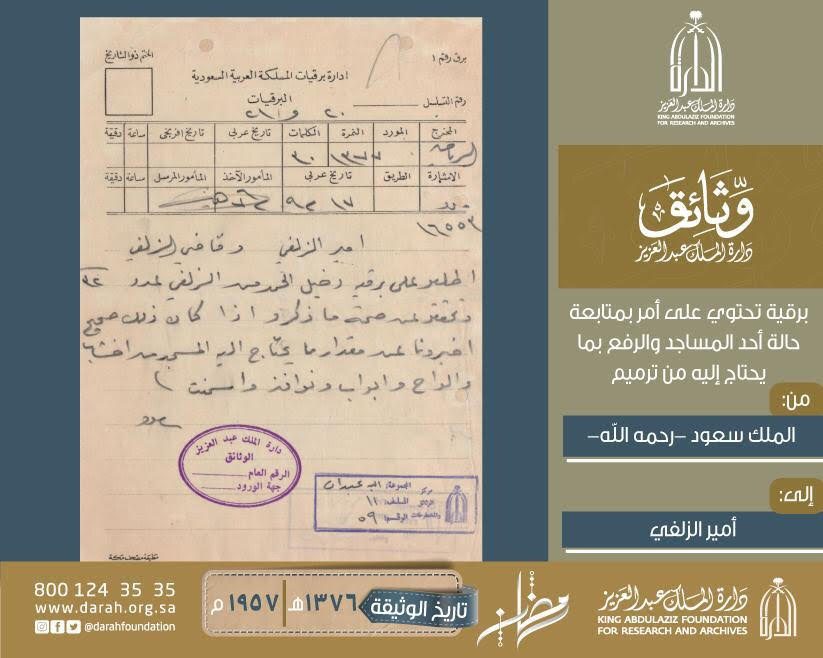 برق رقم ١
الختم ذو التاريخ
ادارة برقيات المملكة العربية السعودية
البرقيات
رقم التسلسل
المخرج المورد النمرة الكلمات تاريخ عربي تاريخ افرنجي ساعة دقيقة
الرياض ١٣٧٧ ٣٠
الاشارة الطريق تاريخ عربي المأمور الآخذ المأمور المرسل ساعة دقيقة
١٧ ٩
١٦٥٥٣
امير الزلفي وقاضي الزلفي
اطلعوا على برقية دخيل الحمد من الزلفي بعدد ٣٢
وتحققوا عن صحة ما ذكر و اذا كان ذلك صحيح
اخبرونا عن مقدار ما يحتاج اليه المسجد من اخشاب
والواح وابواب ونوافذ واسمنت
سعود
دارة الملك عبد العزيز
الوثائق
الرقم العام
جهة الورود
المجموعة:
الملف: ١١
الرقم: ٥٩
مطبعة مصحف مكة
الدارة
دارة الملك عبدالعزيز
KING ABDULAZIZ FOUNDATION
FOR RESEARCH AND ARCHIVES
وثائق
دارة الملك عبدالعزيز
برقية تحتوي على أمر بمتابعة
حالة أحد المساجد والرفع بما
يحتاج إليه من ترميم
من:
الملك سعود –رحمه الله–
إلى:
أمير الزلفي
800 124 35 35
www.darah.org.sa
@darahfoundation
تاريخ الوثيقة ١٣٧٦هـ ١٩٥٧م
رمضان
دارة الملك عبدالعزيز
KING ABDULAZIZ FOUNDATION
FOR RESEARCH AND ARCHIVES